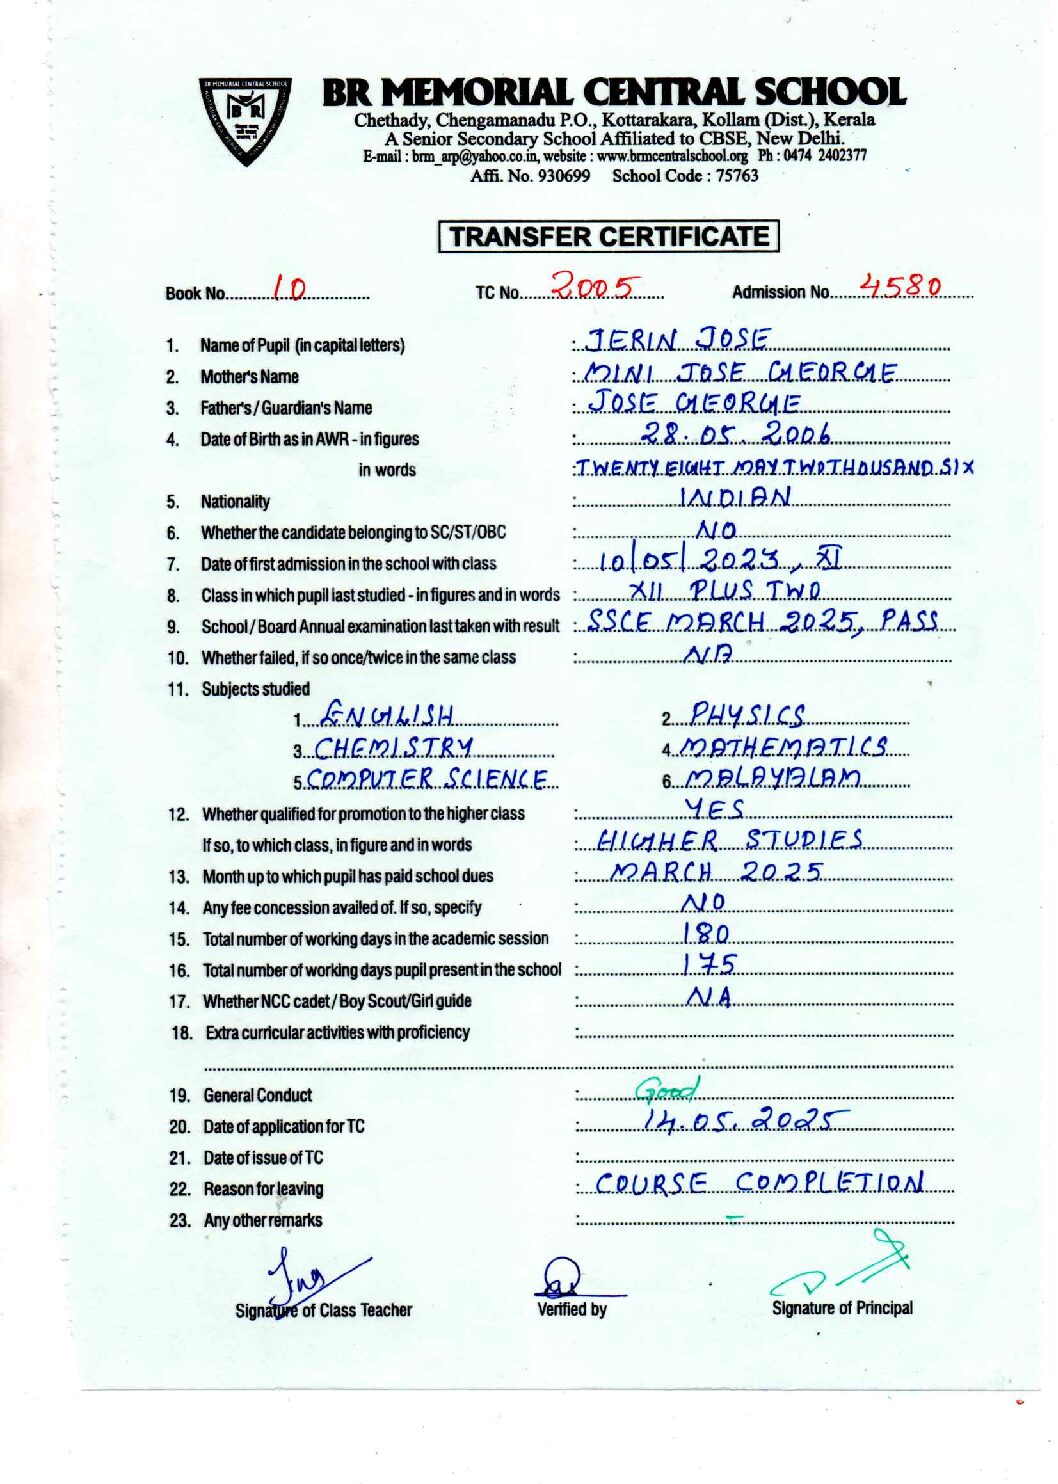 BR MEMORIAL CENTRAL SCHOOL
BR MEMORIAL CENTRAL SCHOOL
Chethady, Chengamanadu P.O., Kottarakara, Kollam (Dist.), Kerala
A Senior Secondary School Affiliated to CBSE, New Delhi.
E-mail : brm_arp@yahoo.co.in, website : www.brmcentralschool.org Ph : 0474 2402377
Affi. No. 930699 School Code : 75763
TRANSFER CERTIFICATE
Book No. 10 TC No. 2005 Admission No. 4580
1. Name of Pupil (in capital letters) : JERIN JOSE
2. Mother's Name : MINI JOSE GEORGE
3. Father's / Guardian's Name : JOSE GEORGE
4. Date of Birth as in AWR - in figures : 28.05.2006
in words : TWENTY EIGHT MAY TWO THOUSAND SIX
5. Nationality : INDIAN
6. Whether the candidate belonging to SC/ST/OBC : NO
7. Date of first admission in the school with class : 10/05/2023, XI
8. Class in which pupil last studied - in figures and in words : XII PLUS TWO
9. School / Board Annual examination last taken with result : SSCE MARCH 2025, PASS
10. Whether failed, if so once/twice in the same class : NA
11. Subjects studied
1. ENGLISH 2. PHYSICS
3. CHEMISTRY 4. MATHEMATICS
5. COMPUTER SCIENCE 6. MALAYALAM
12. Whether qualified for promotion to the higher class : YES
If so, to which class, in figure and in words : HIGHER STUDIES
13. Month up to which pupil has paid school dues : MARCH 2025
14. Any fee concession availed of. If so, specify : NO
15. Total number of working days in the academic session : 180
16. Total number of working days pupil present in the school : 175
17. Whether NCC cadet / Boy Scout/Girl guide : NA
18. Extra curricular activities with proficiency :
19. General Conduct : Good
20. Date of application for TC : 14.05.2025
21. Date of issue of TC :
22. Reason for leaving : COURSE COMPLETION
23. Any other remarks : –
Signature of Class Teacher Verified by Signature of Principal